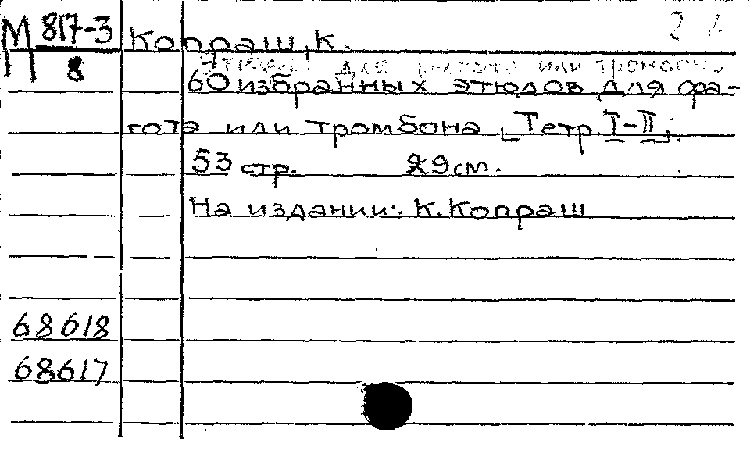 М 817-3
П 8
Копраш, К.
Этюды для фагота или тромбона
60 избранных этюдов для фа-
гота или тромбона [Тетр. I-II].
53 стр. 29 см.
На издании: К. Копраш
68618
68617